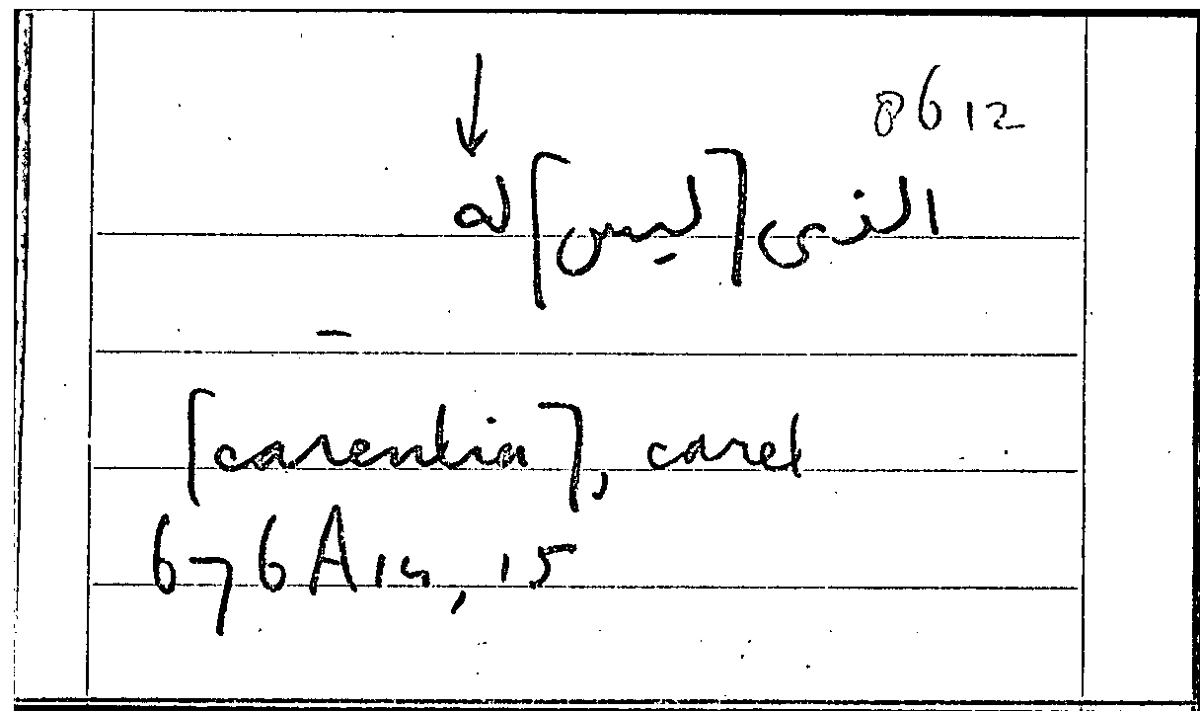 8612
↓
الذى [ليس] له
–
[carentia], caret
676A14, 15